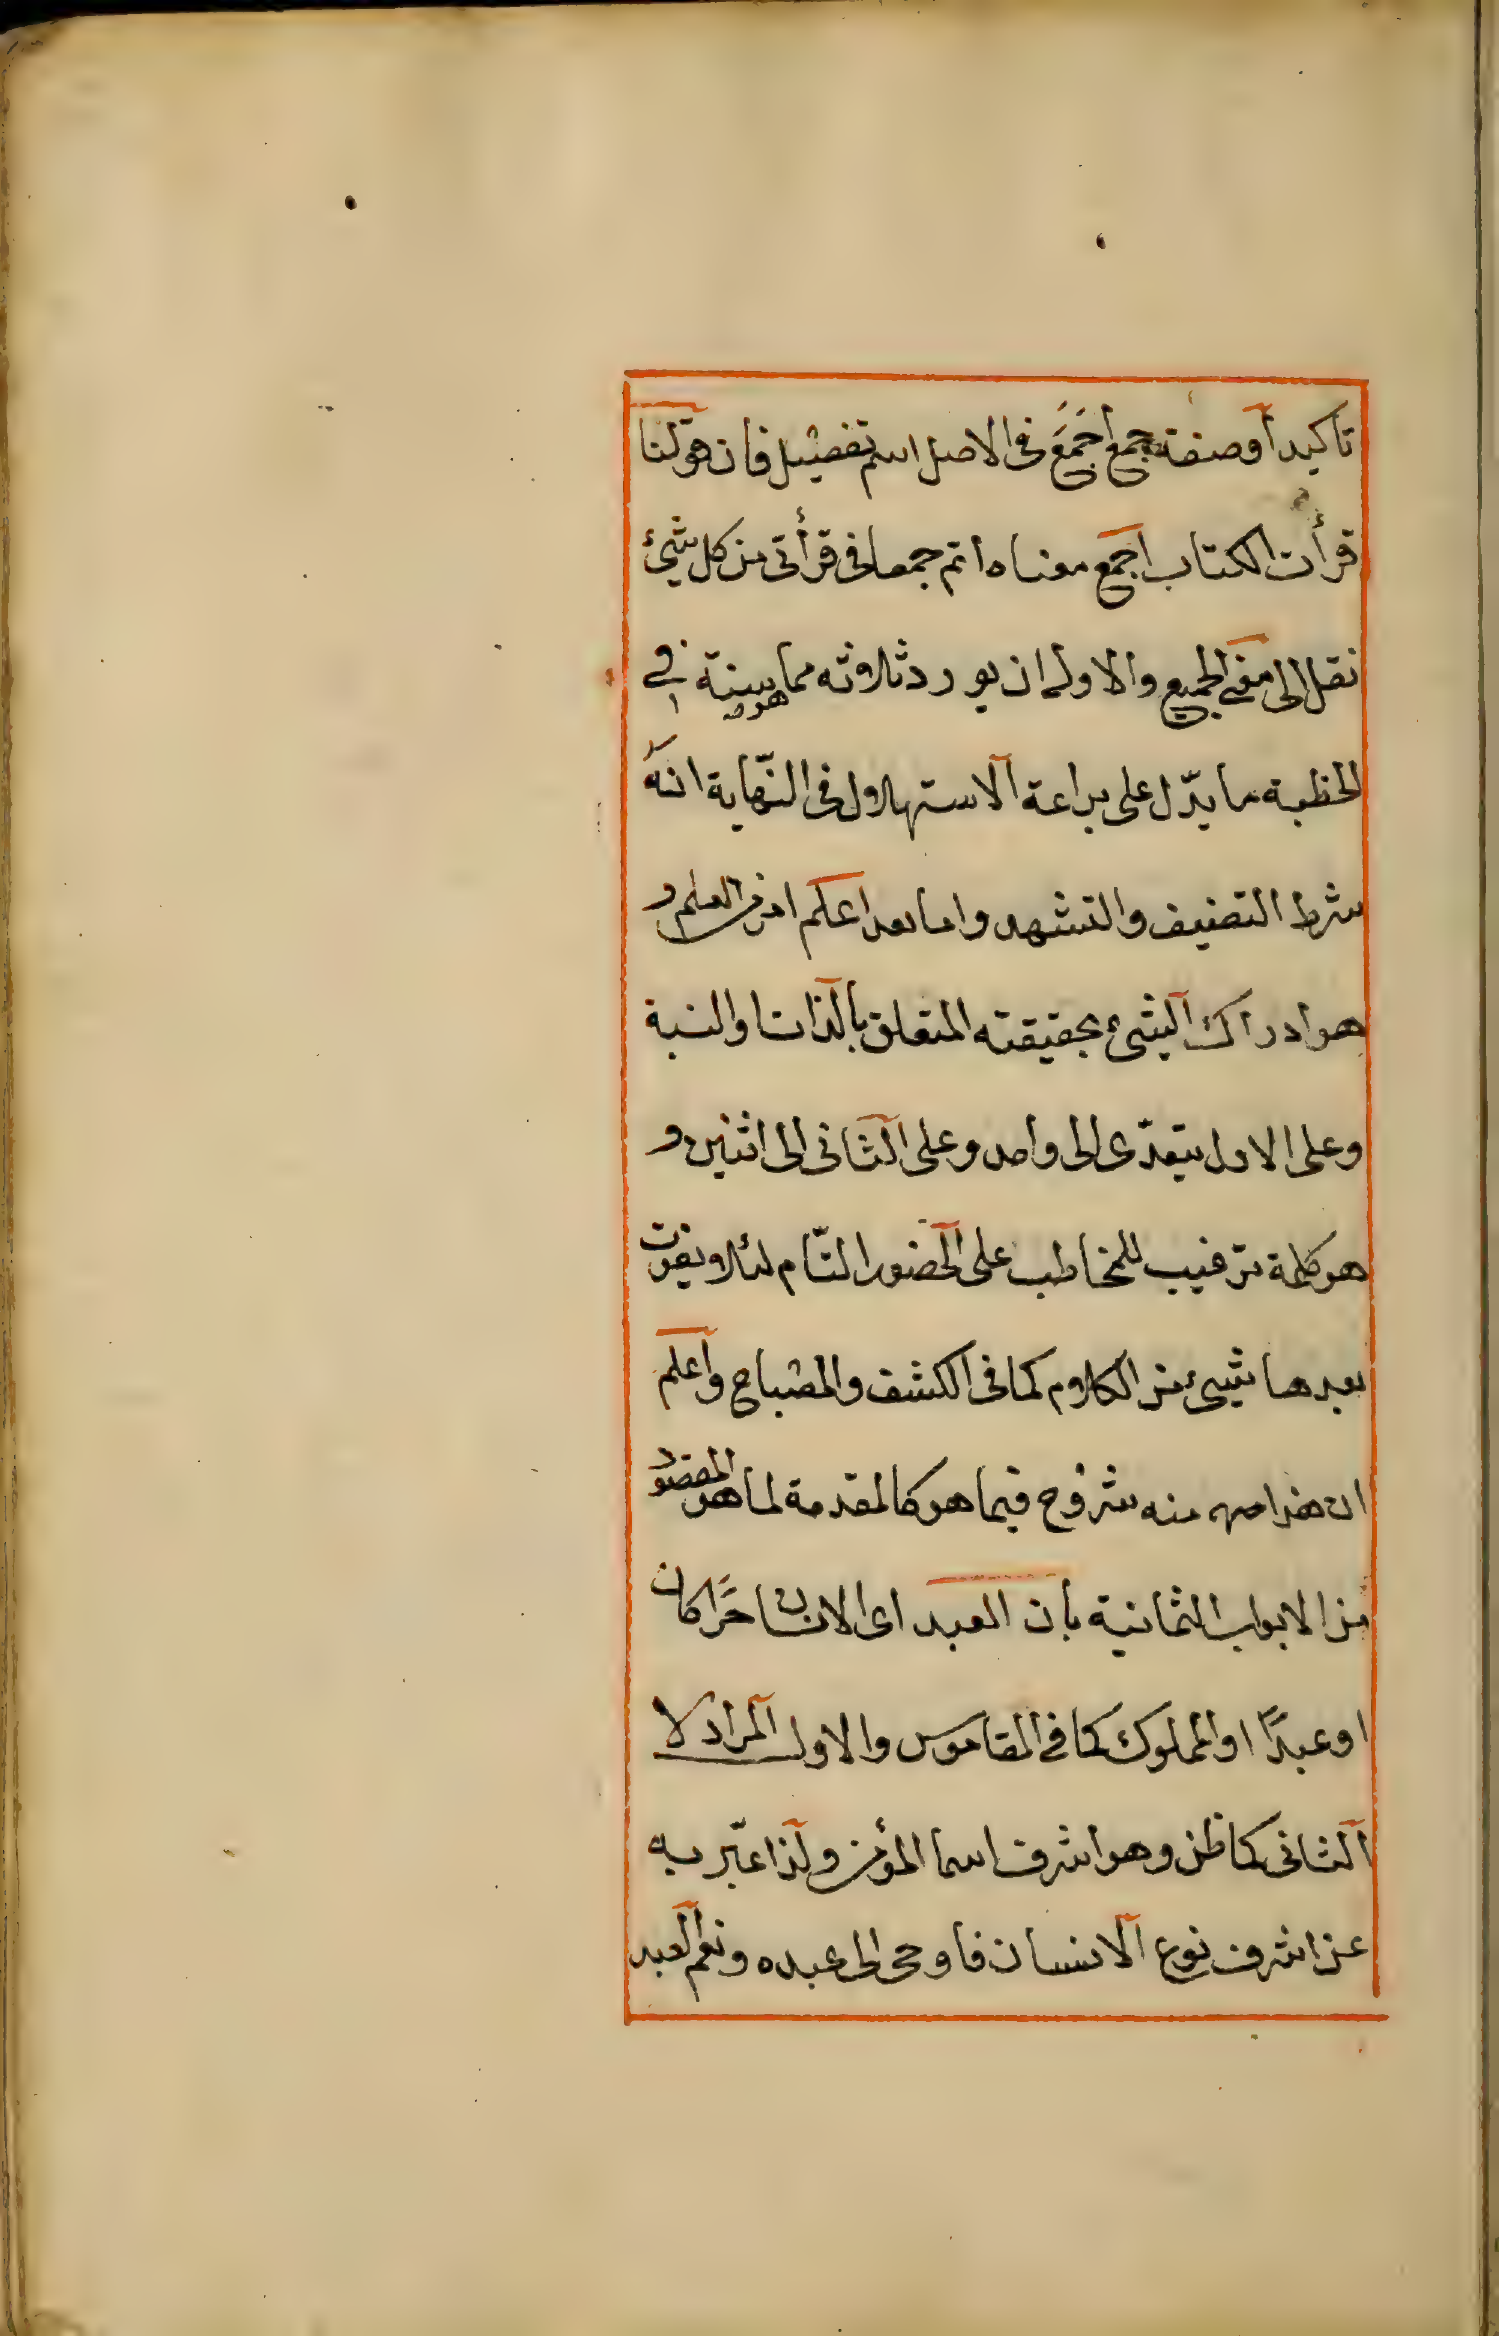 تاكيد أوصفة جمع أجمع في الاصل اسم تفضيل فان قولنا
قرأت الكتاب اجمع معناه اتم جمعا في قرأتى من كل شيئ
نقل الى معنى الجميع والاولى ان يورد ثلاثه مما هو سنة في
الخطبة ما يدّل على براعة الاستهلال في النّهاية انه
شرط التصنيف والتشهد واما بعد اعلم امر من العلم و
هو ادراك الشئ بحقيقته المتعلق بالذات او النسبة
وعلى الاول يتعدّى الى واحد وعلى الثانى الى اثنين و
هو كلمة ترغيب للمخاطب على الحضور التّام لئلا يفوت
بعدها شيئ من الكلام كما في الكشف والمصباح وأعلم
ان هذا منه شروح فيما هو كالمقدمة لما هو المقصود
من الابواب الثمانية بان العبد اى الانسان حرّا كان
او عبدًا او المملوك كما في القاموس والاول المراد لا
الثانى كما ظن وهو اشرف اسما المؤمن ولذا عبّر به
عن اشرف نوع الانسان فاوحى الى عبده ونعم العبد